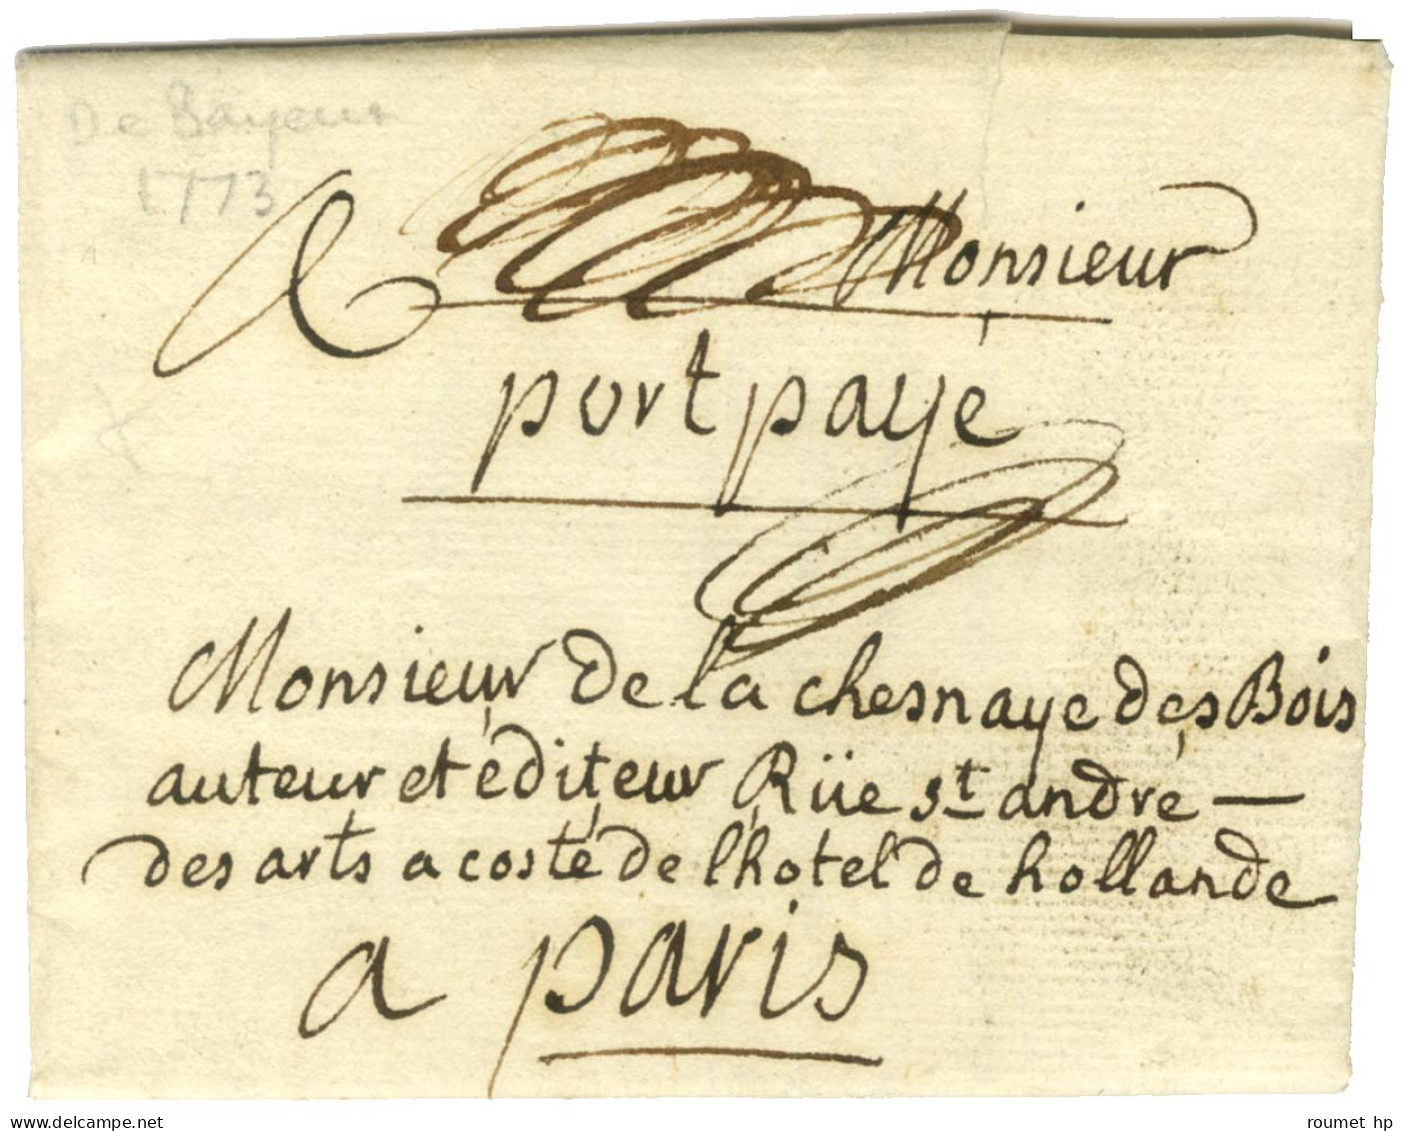 De Bayeux
1773
A Monsieur
port payé
Monsieur de la chesnaye des Bois
auteur et éditeur Rüe st andré —
des arts a costé de l'hotel de hollande
a paris
roumet hp
delcampe.net